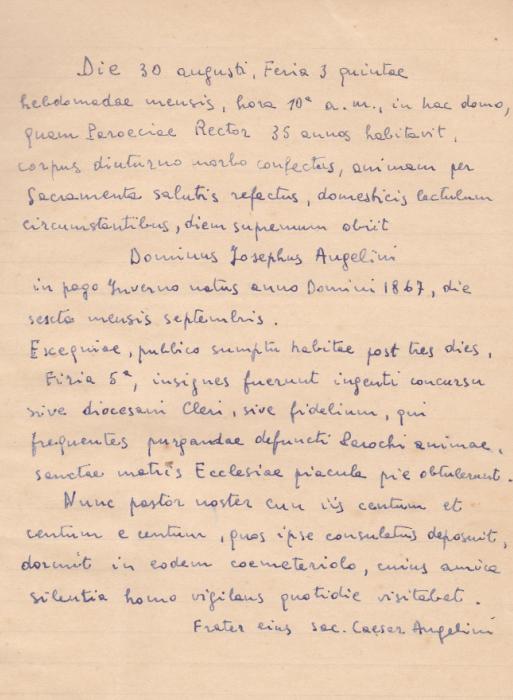 Die 30 augusti, Feria 3 quintae
hebdomadae mensis, hora 10ª a.m., in hac domo,
quam Paroeciae Rector 35 annos habitavit,
corpus diuturno morbo confectus, animam per
Sacramenta salutis refectus, domesticis lectulum
circumstantibus, diem supremum obiit
Dominus Josephus Angelini
in pago Inverno natus anno Domini 1867, die
sexta mensis septembris.
Exequiae, publico sumptu habitae post tres dies,
Firia 5ª, insignes fuerunt ingenti concursu
sive diocesani Cleri, sive fidelium, qui
frequentes purgandae defuncti Parochi animae,
sanctae matris Ecclesiae piacula pie obtulerunt.
Nunc pastor noster cum iis centum et
centum e centum, quos ipse consulatus deposuit,
dormit in eodem coemeteriolo, cuius amica
silentia homo vigilans quotidie visitabat.
Frater eius sac. Caesar Angelini